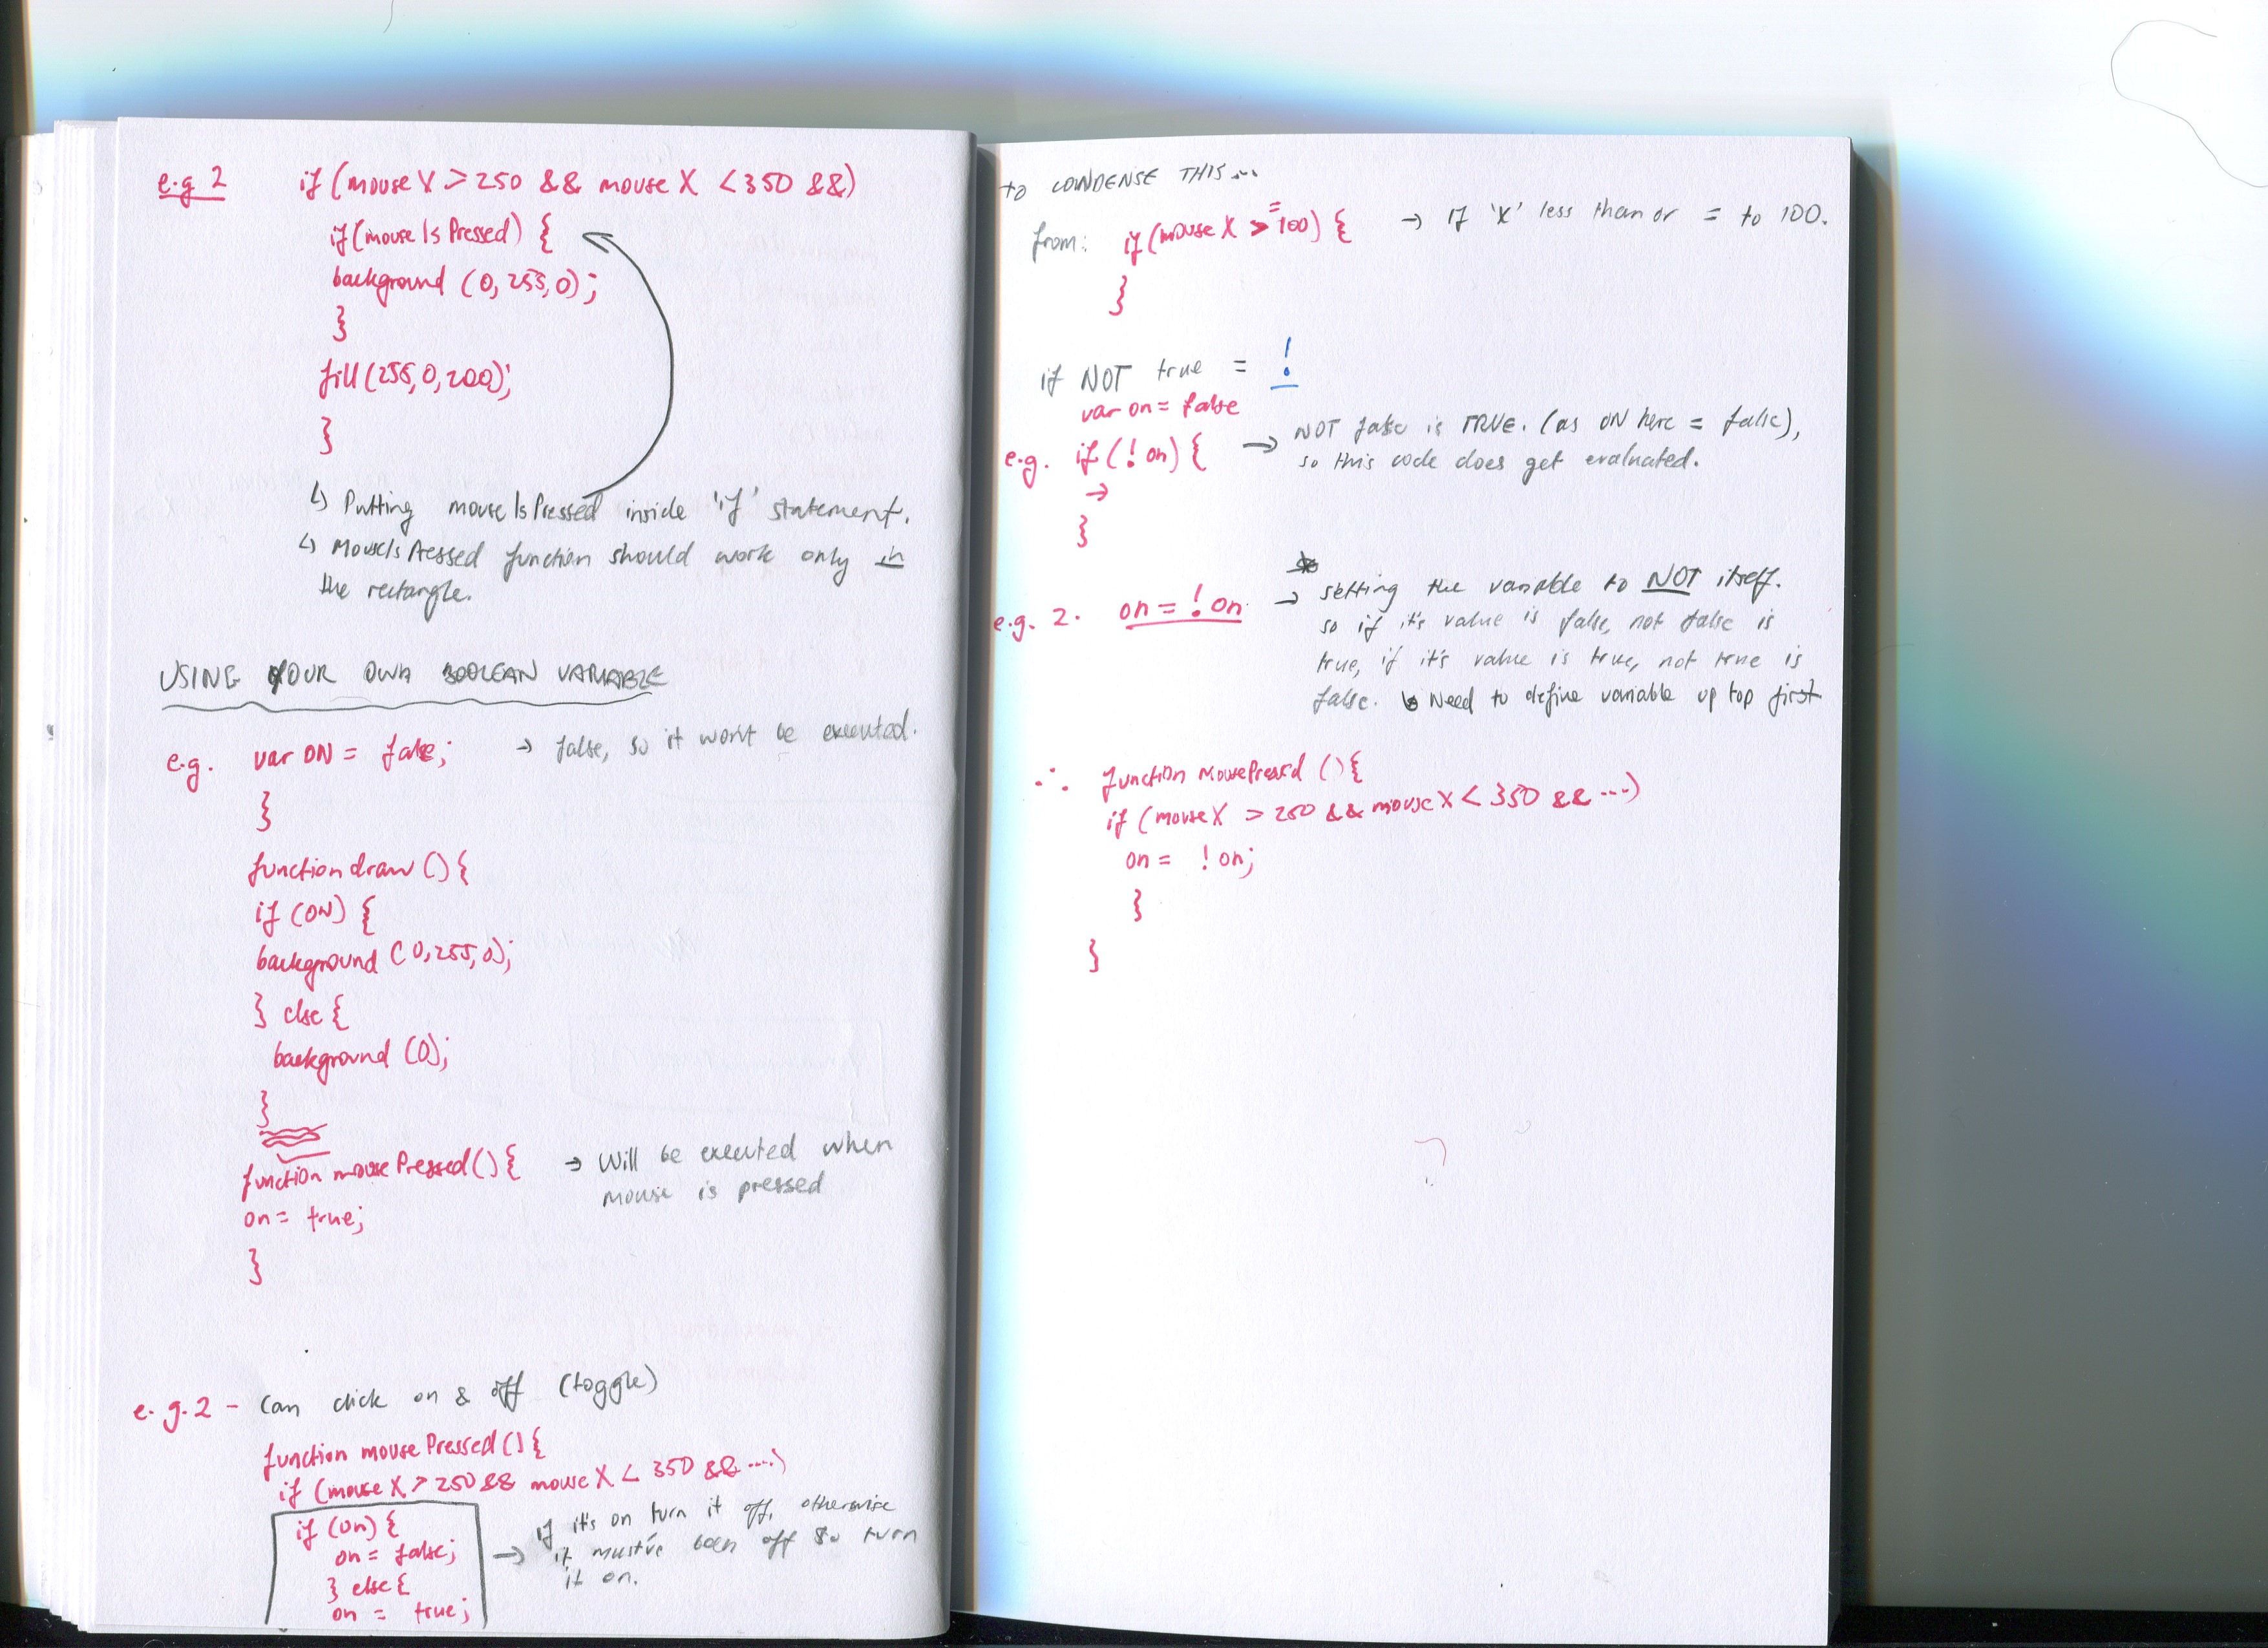 e.g 2 if (mouse X > 250 && mouse X < 350 &&)
if(mouse Is Pressed) {
background (0, 255, 0);
}
fill (255, 0, 200);
}
↳ Putting mouse Is Pressed inside 'if' statement.
↳ MouseIs Pressed function should work only in
the rectangle.
USING YOUR OWN BOOLEAN VARIABLE
e.g. var ON = false; → false, so it won't be executed.
}
function draw () {
if (ON) {
background (0, 255, 0);
} else {
background (0);
}
function mouse Pressed () { → Will be executed when
mouse is pressed
on = true;
}
e.g. 2 - Can click on & off (toggle)
function mouse Pressed () {
if (mouse X > 250 && mouse X < 350 && ....)
if (on) {
on = false;
} else {
on = true;
→ if it's on turn it off, otherwise
it must've been off so turn
it on.
to CONDENSE THIS...
from: if (mouse X >= 100) { → If 'X' less than or = to 100.
}
if NOT true = !
var on = false
e.g. if (! on) { → NOT false is TRUE. (as ON here = false),
so this code does get evaluated.
→
}
e.g. 2. on = ! on → * setting the variable to NOT itself.
so if it's value is false, not false is
true, if it's value is true, not true is
false. ↳ Need to define variable up top first
∴ function mousePressed () {
if (mouse X > 250 && mouse X < 350 && ....)
on = ! on;
}
}